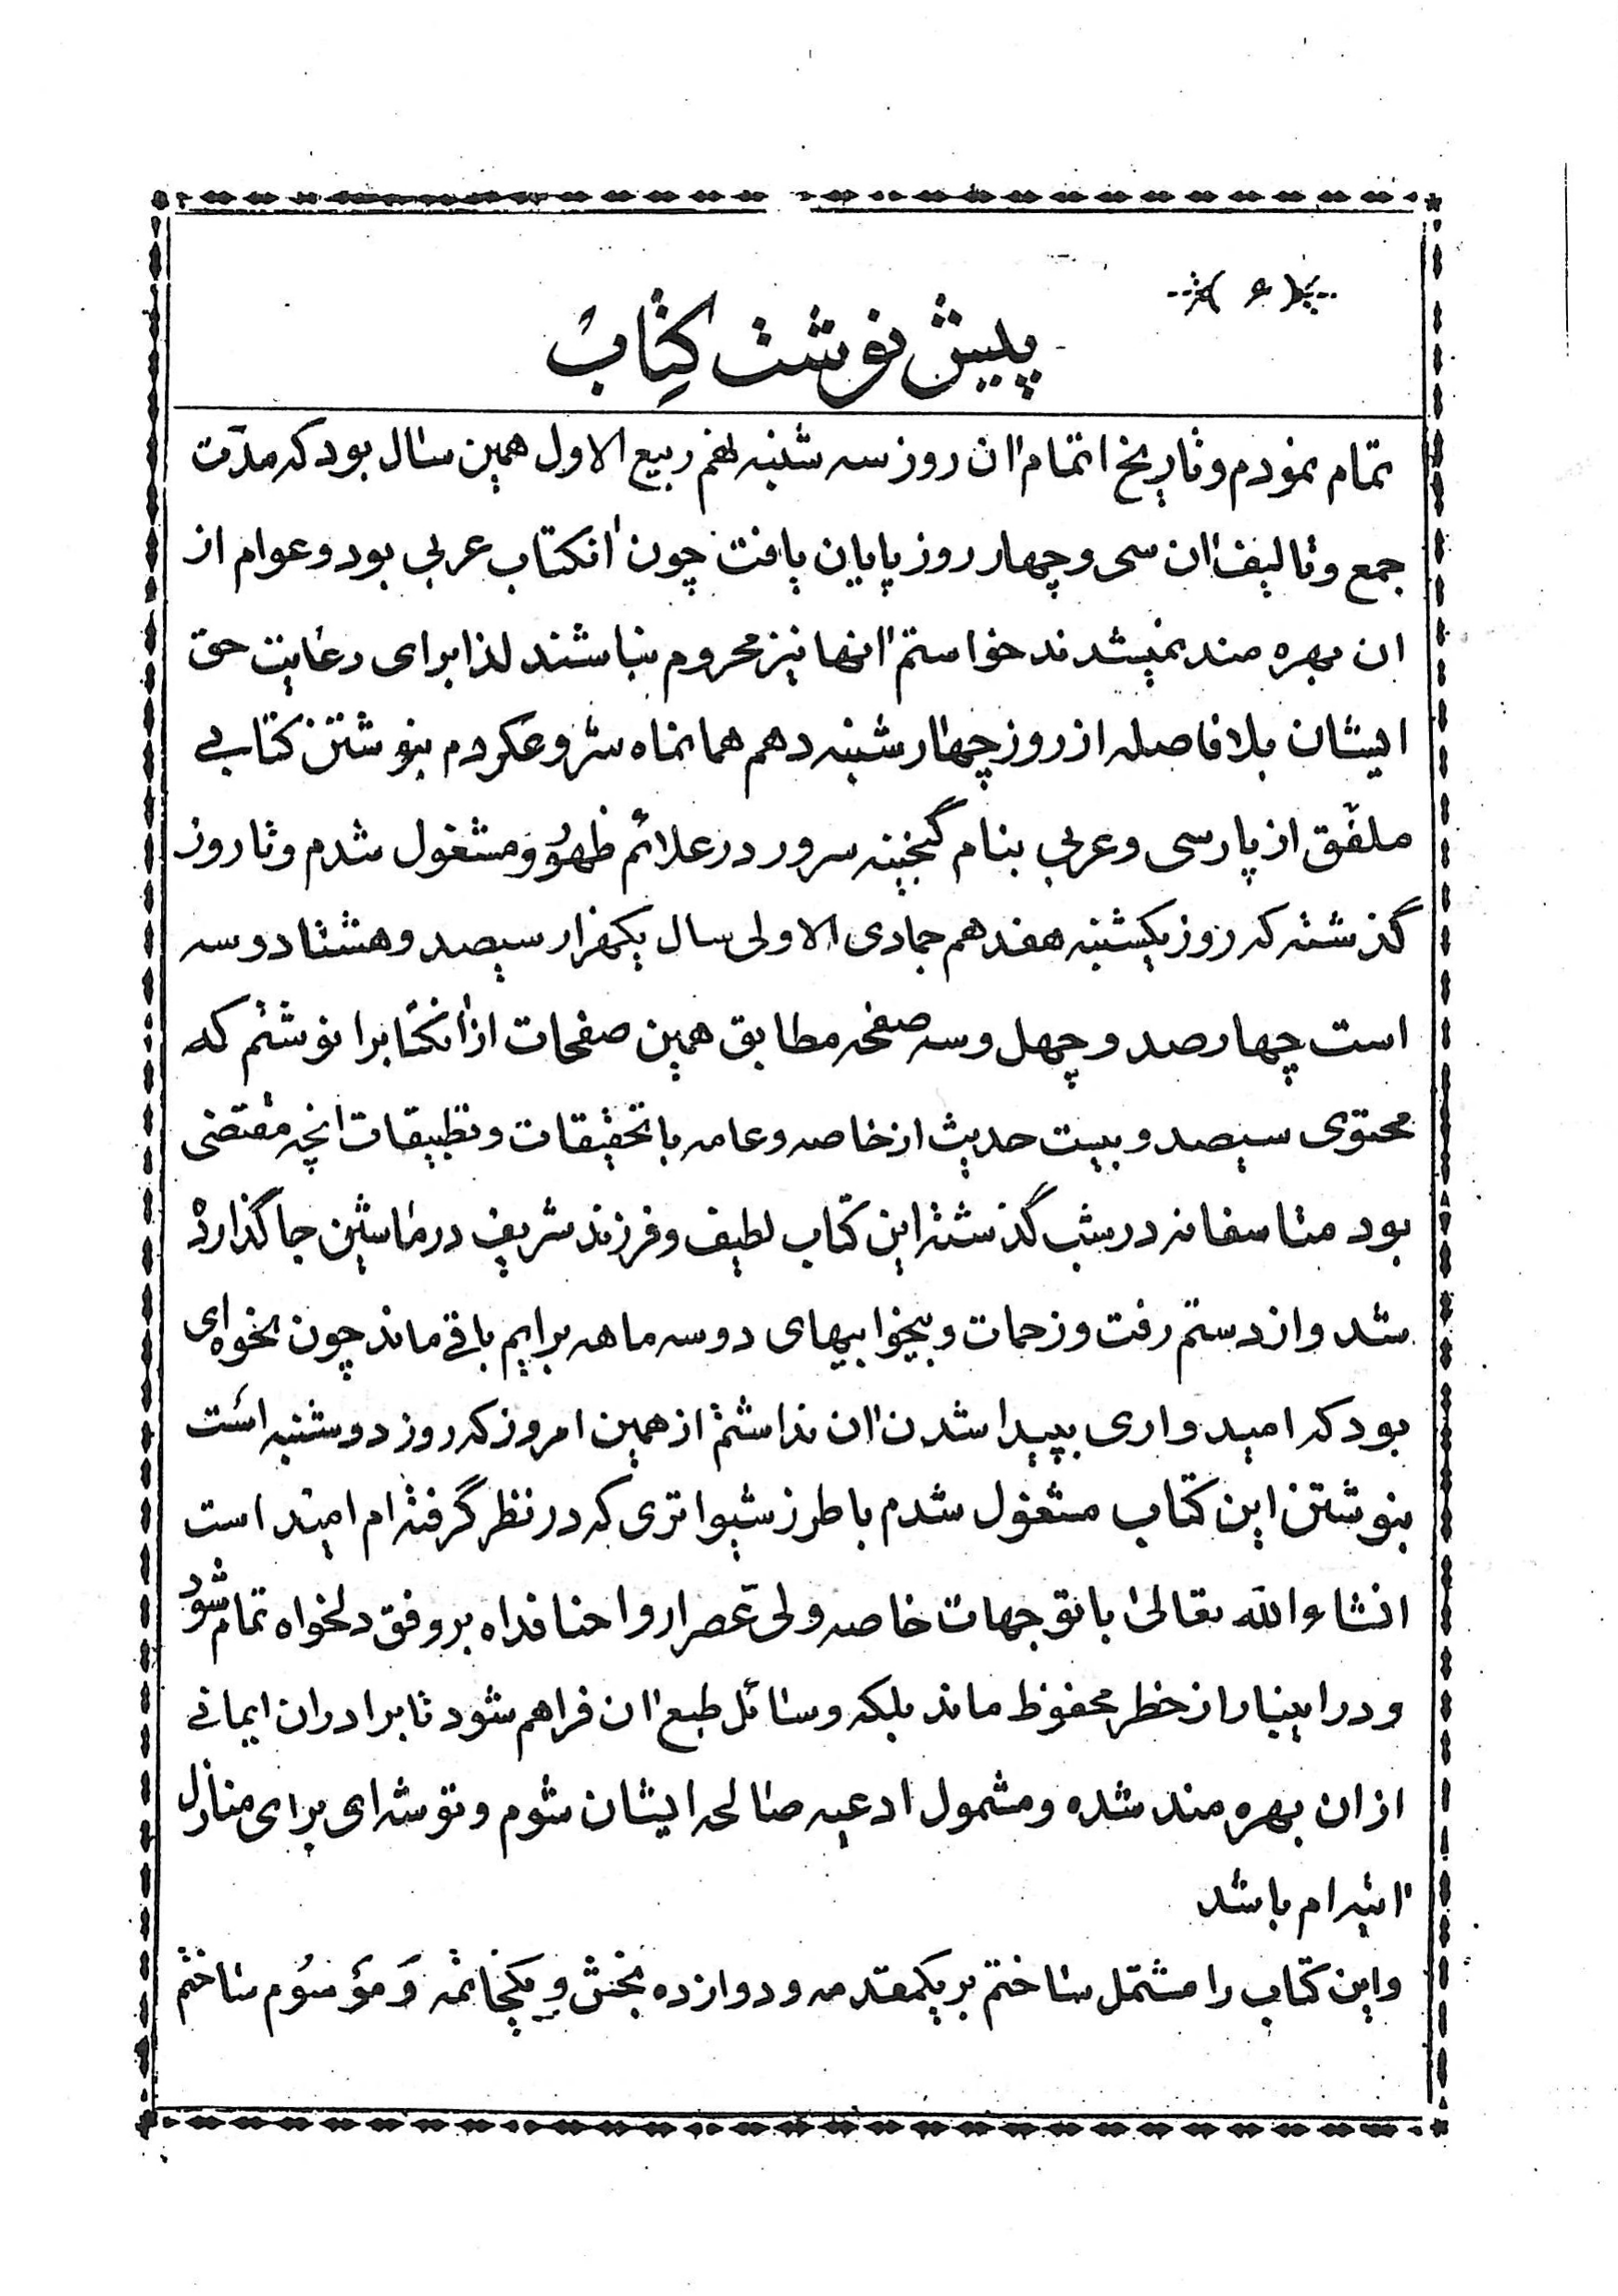 ﴿ ۶ ﴾
پیش نوشت کتاب
تمام نمودم و تاریخ اتمام آن روز سه شنبه نهم ربیع الاول همین سال بود که مدّت
جمع و تالیف آن سی و چهار روز پایان یافت چون آنکتاب عربی بود و عوام از
ان بهره مند نمیشدند خواستم آنها نیز محروم نباشند لذا برای رعایت حق
ایشان بلا فاصله از روز چهارشنبه دهم همانماه شروع کردم بنوشتن کتابی
ملفّق از پارسی و عربی بنام گنجینه سرور در علائم ظهور و مشغول شدم و تا روز
گذشته که روز یکشنبه هفدهم جمادی الاولی سال یکهزار سیصد و هشتاد و سه
است چهارصد و چهل و سه صفحه مطابق همین صفحات از آنکتابرا نوشتم که
محتوی سیصد و بیست حدیث از خاصه و عامه با تحقیقات و تطبیقات انچه مقتضی
بود متاسفانه در شب گذشته این کتاب لطیف و فرزند شریف در ماشین جا گذارده
شد و از دستم رفت و زحمات و بیخوابیهای دو سه ماهه برایم باقی ماند چون بنحوه‌ای
بود که امیدواری بپیدا شدن آن نداشتم از همین امروز که روز دوشنبه است
بنوشتن این کتاب مشغول شدم با طرز شیواتری که در نظر گرفته ام امید است
انشاء الله تعالیٰ با توجهات خاصه ولی عصر ارواحنا فداه بر وفق دلخواه تمام شود
و در اینبار از خطر محفوظ ماند بلکه وسائل طبع آن فراهم شود تا برادران ایمانی
از ان بهره مند شده و مشمول ادعیه صالحه ایشان شوم و توشه ای برای منازل
آتیه ام باشد
و این کتاب را مشتمل ساختم بر یکمقدمه و دوازده بخش و یکخاتمه وَ مَوْسُوم ساختم